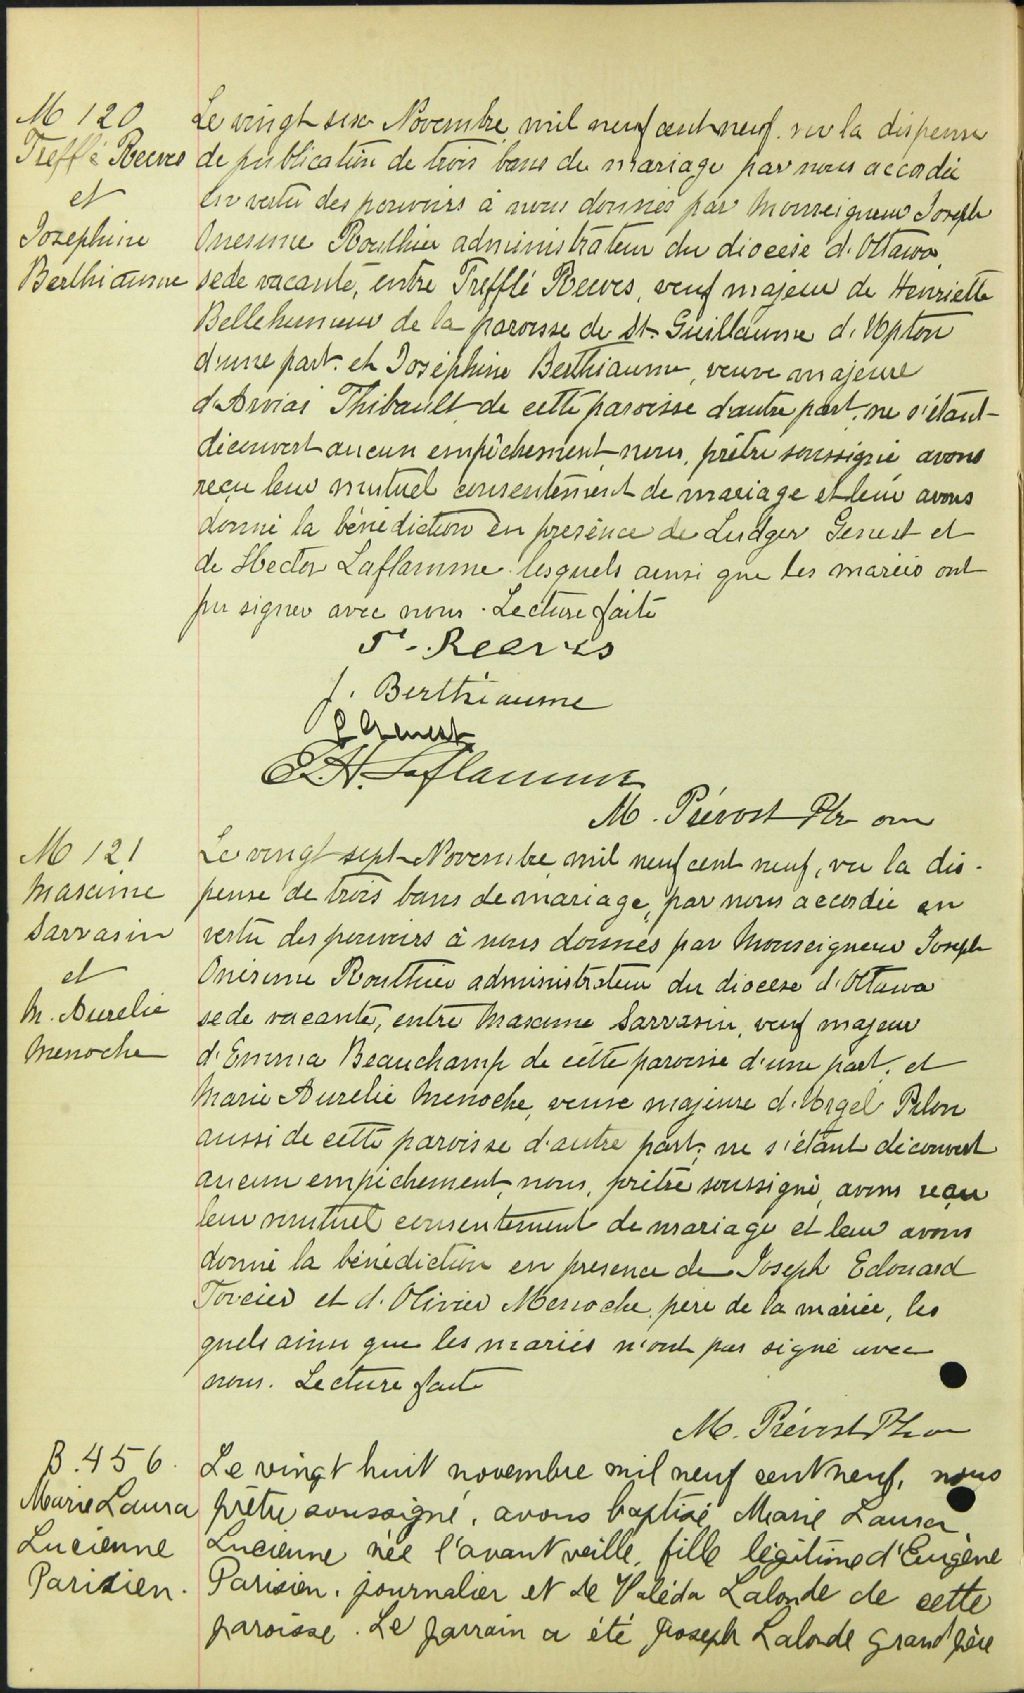 M 120
Trefflé Reeves
et
Josephine
Berthiaume
Le vingt six Novembre mil neuf cent neuf, vu la dispense
de publication de trois bans de mariage par nous accordée
en vertu des pouvoirs à nous donnés par Monseigneur Joseph
Onesime Routhier administrateur du diocèse d'Ottawa,
sede vacante, entre Trefflé Reeves, veuf majeur de Henriette
Bellehumeur de la paroisse de St. Guillaume d'Upton
d'une part. et Joséphine Berthiaume, veuve majeure
d'Arvias Thibault de cette paroisse d'autre part, ne s'étant
découvert aucun empêchement, nous, prêtre soussigné avons
reçu leur mutuel consentement de mariage et leur avons
donné la bénédiction en présence de Ludger Genest et
de Hector Laflamme lesquels ainsi que les mariés ont
pu signer avec nous. Lecture faite
T. Reeves
J. Berthiaume
L Genest
E. H. Laflamme
M. Prévost Ptr omi
M 121
Maxime
Sarrasin
et
M. Aurelie
Menoche
Le vingt sept Novembre mil neuf cent neuf, vu la dis-
pense de trois bans de mariage, par nous accordée en
vertu des pouvoirs à nous donnés par Monseigneur Joseph
Onésime Routhier administrateur du diocèse d'Ottawa
sede vacante, entre Maxime Sarrasin, veuf majeur
d'Emma Beauchamp de cette paroisse d'une part, et
Marie Aurelie Menoche, veuve majeure d'Urgel Pilon
aussi de cette paroisse d'autre part; ne s'étant découvert
aucun empêchement, nous, prêtre soussigné, avons reçu
leur mutuel consentement de mariage et leur avons
donné la bénédiction en présence de Joseph Edouard
et d'Olivier Menoche père de la mariée, les
quels ainsi que les mariés n'ont pas signé avec
nous. Lecture faite
M. Prévost Ptr omi
B. 456.
Marie Laura
Lucienne
Parisien.
Le vingt huit novembre mil neuf cent neuf, nous
prêtre soussigné, avons baptisé Marie Laura
Lucienne née l'avant veille, fille légitime d'Eugène
Parisien, journalier et de Valéda Lalonde de cette
paroisse. Le parrain a été Joseph Lalonde grand père